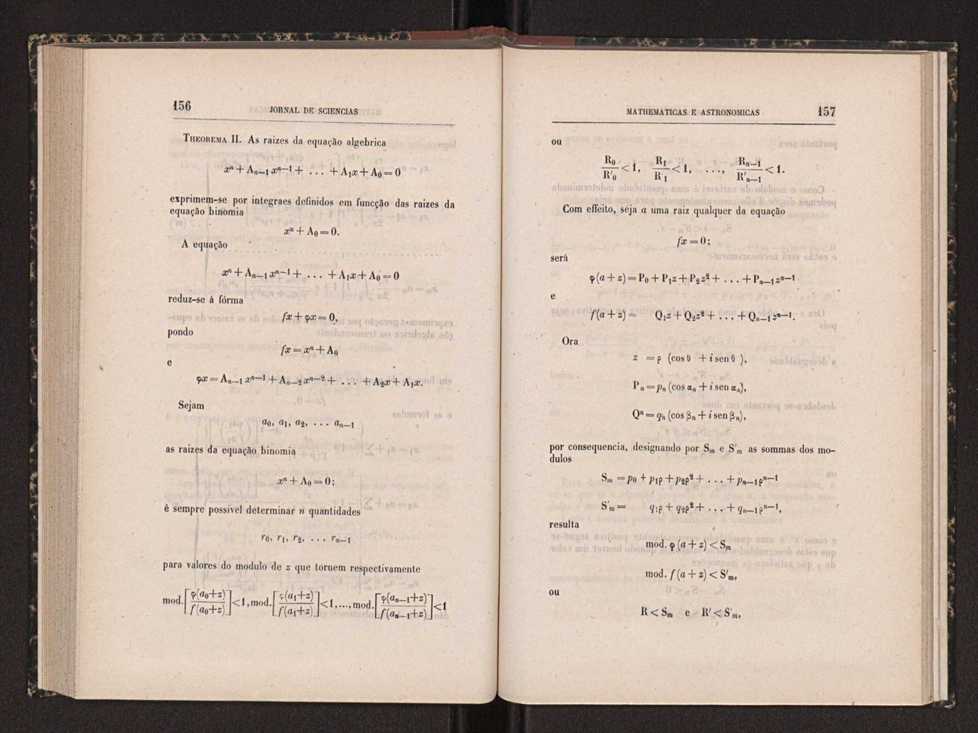 156
JORNAL DE SCIENCIAS
THEOREMA II. As raizes da equação algebrica
xⁿ + Aₙ₋₁xⁿ⁻¹ + . . . + A₁x + A₀ = 0
exprimem-se por integraes definidos em funcção das raizes da
equação binomia
xⁿ + A₀ = 0.
A equação
xⁿ + Aₙ₋₁xⁿ⁻¹ + . . . + A₁x + A₀ = 0
reduz-se á fórma
fx + φx = 0,
pondo
fx = xⁿ + A₀
e
φx = Aₙ₋₁xⁿ⁻¹ + Aₙ₋₂xⁿ⁻² + . . . + A₂x + A₁x.
Sejam
a₀, a₁, a₂, . . . aₙ₋₁
as raizes da equação binomia
xⁿ + A₀ = 0;
è sempre possivel determinar n quantidades
r₀, r₁, r₂, . . . rₙ₋₁
para valores do modulo de z que tornem respectivamente
mod.[φ(a₀+z)/f(a₀+z)]<1, mod.[φ(a₁+z)/f(a₁+z)]<1,..., mod.[φ(aₙ₋₁+z)/f(aₙ₋₁+z)]<1
MATHEMATICAS E ASTRONOMICAS
157
ou
R₀/R'₀ < 1, R₁/R'₁ < 1, ..., Rₙ₋₁/R'ₙ₋₁ < 1.
Com effeito, seja a uma raiz qualquer da equação
fx = 0;
será
φ(a + z) = P₀ + P₁z + P₂z² + . . . + Pₙ₋₁zⁿ⁻¹
e
f(a + z) = Q₁z + Q₂z² + . . . + Qₙ₋₁zⁿ⁻¹.
Ora
z = ρ (cos θ + i sen θ ),
Pₙ = pₙ (cos αₙ + i sen αₙ),
Qⁿ = qₙ (cos βₙ + i sen βₙ),
por consequencia, designando por Sₘ e S'ₘ as sommas dos mo-
dulos
Sₘ = p₀ + p₁ρ + p₂ρ² + . . . + pₙ₋₁ρⁿ⁻¹
S'ₘ = q₁ρ + q₂ρ² + . . . + qₙ₋₁ρⁿ⁻¹,
resulta
mod. φ (a + z) < Sₘ
mod. f (a + z) < S'ₘ,
ou
R < Sₘ e R' < S'ₘ,